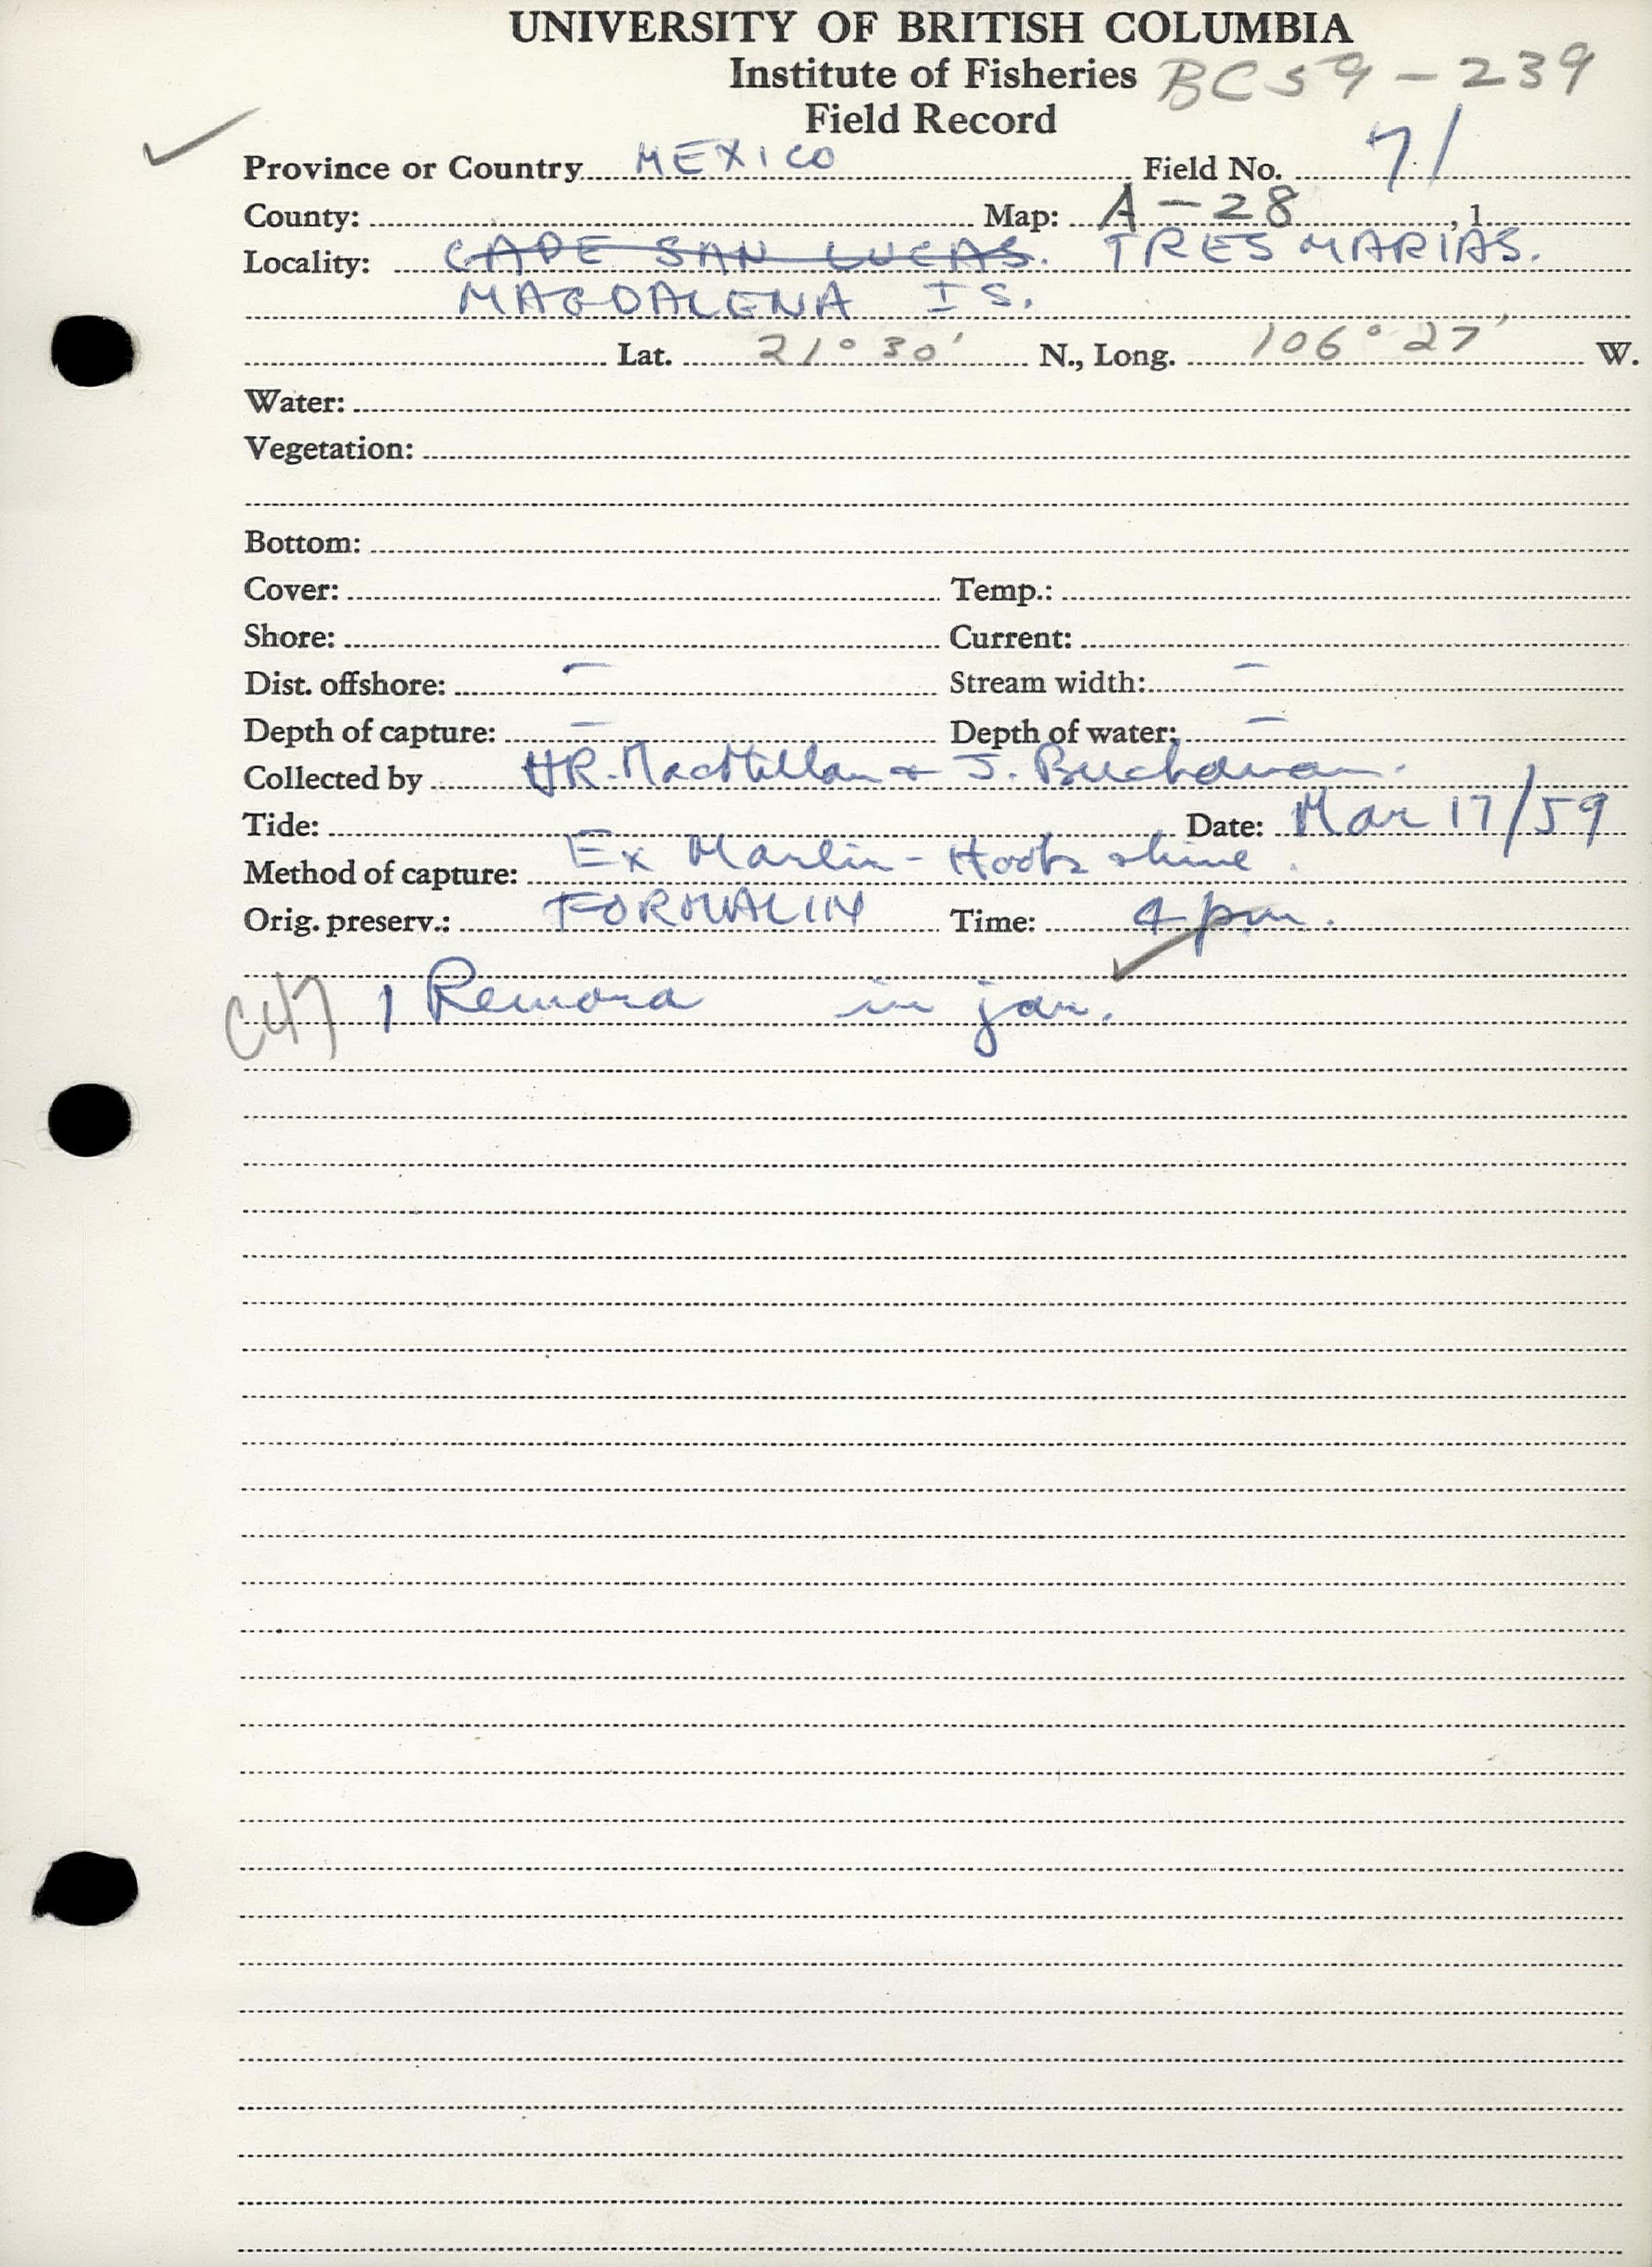 UNIVERSITY OF BRITISH COLUMBIA
Institute of Fisheries BC59-239
Field Record
Province or Country MEXICO Field No. 71
County: Map: A-28, 1
Locality: CAPE SAN LUCAS. TRES MARIAS.
MAGDALENA IS.
Lat. 21° 30' N., Long. 106° 27' W.
Water:
Vegetation:
Bottom:
Cover: Temp.:
Shore: Current:
Dist. offshore: — Stream width: —
Depth of capture: — Depth of water: —
Collected by HR. MacMillan + J. Buchanan.
Tide: Date: Mar 17/59
Method of capture: Ex Marlin - Hook
Orig. preserv.: FORMALIN Time: 4 pm.
1 Remora in jar.